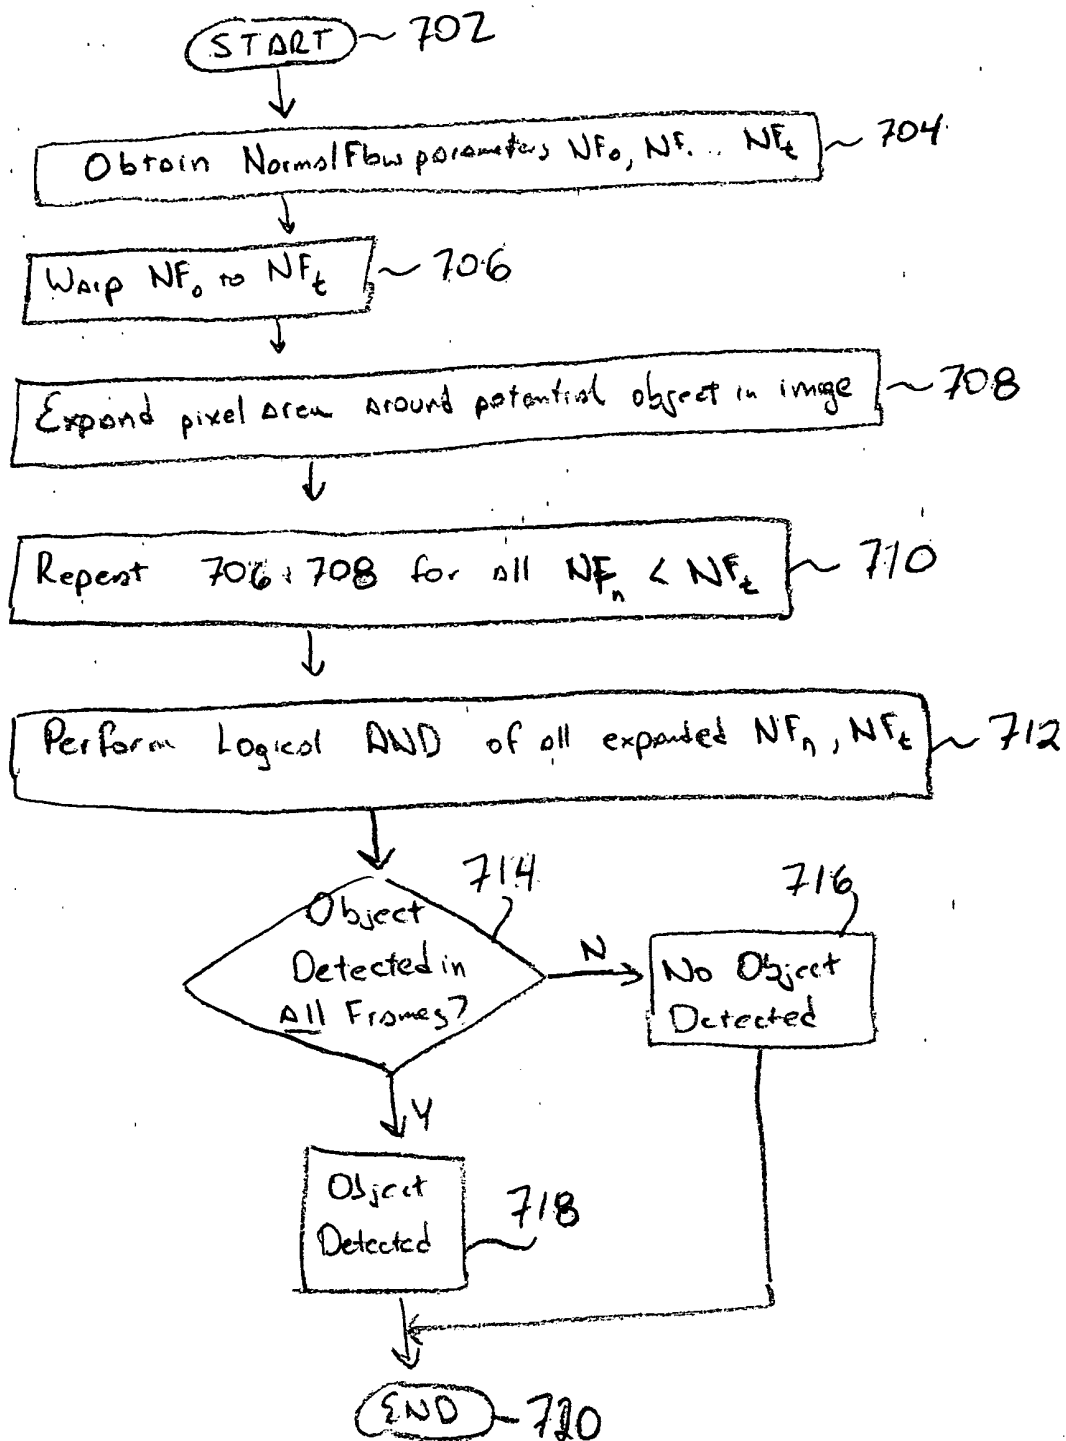 START 702
Obtain Normal Flow parameters NF₀, NF₁ .. NFₜ 704
Warp NF₀ to NFₜ 706
Expand pixel area around potential object in image 708
Repeat 706 & 708 for all NFₙ < NFₜ 710
Perform Logical AND of all expanded NFₙ, NFₜ 712
714
716
Object
Detected in
All Frames?
N
No Object
Detected
Y
Object
Detected
718
END 720